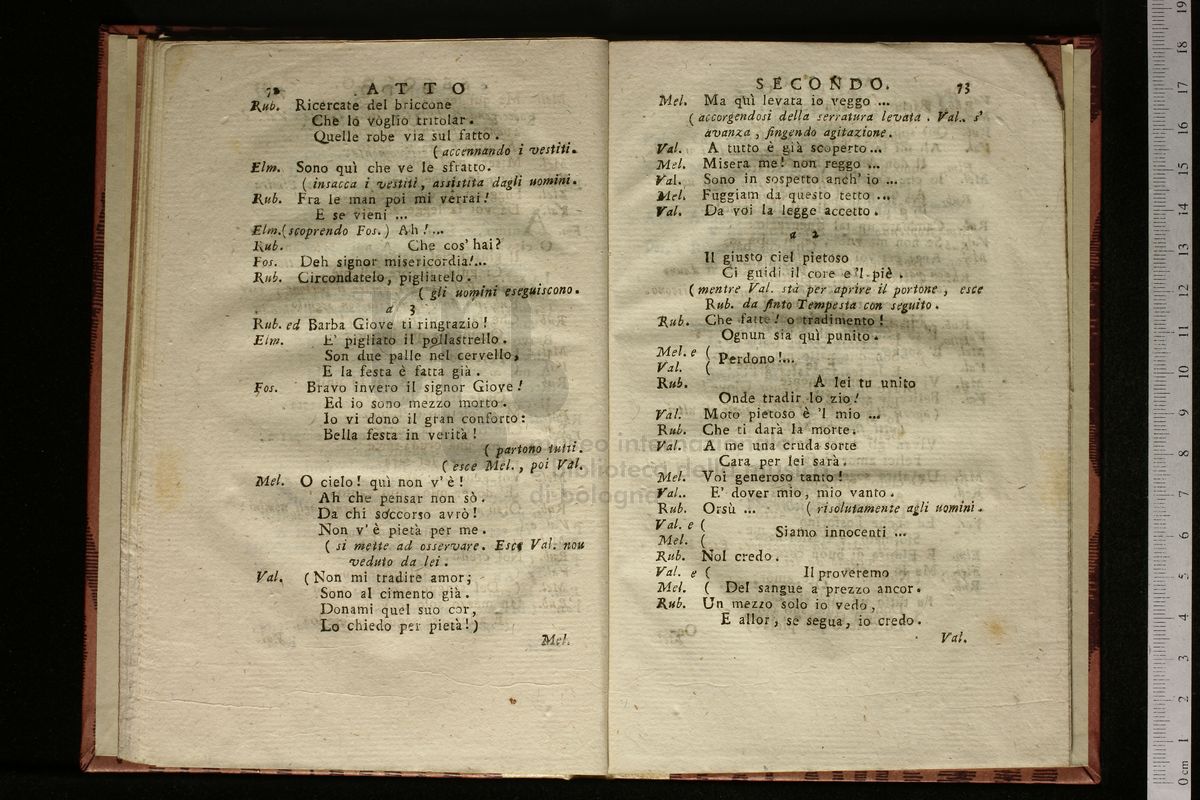 72 ATTO
Rub. Ricercate del briccone
Che lo voglio tritolar.
Quelle robe via sul fatto.
(accennando i vestiti.
Elm. Sono quì che ve le sfratto.
(insacca i vestiti, assistita dagli uomini.
Rub. Fra le man poi mi verrai!
E se vieni ...
Elm. (scoprendo Fos.) Ah! ...
Rub. Che cos' hai?
Fos. Deh signor misericordia!...
Rub. Circondatelo, pigliatelo.
(gli uomini eseguiscono.
a 3
Rub. ed Barba Giove ti ringrazio!
Elm. E' pigliato il pollastrello.
Son due palle nel cervello,
E la festa è fatta già.
Fos. Bravo invero il signor Giove!
Ed io sono mezzo morto.
Io vi dono il gran conforto:
Bella festa in verità!
(partono tutti.
(esce Mel., poi Val.
Mel. O cielo! quì non v'è!
Ah che pensar non sò.
Da chi soccorso avrò!
Non v'è pietà per me.
(si mette ad osservare. Esce Val. non
veduto da lei.
Val. (Non mi tradire amor;
Sono al cimento già.
Donami quel suo cor,
Lo chiedo per pietà!)
Mel.
SECONDO. 73
Mel. Ma quì levata io veggo ...
(accorgendosi della serratura levata. Val.. s'
avanza, fingendo agitazione.
Val. A tutto è già scoperto...
Mel. Misera me! non reggo ...
Val. Sono in sospetto anch' io ...
Mel. Fuggiam da questo tetto ...
Val. Da voi la legge accetto.
a 2
Il giusto ciel pietoso
Ci guidi il core e 'l piè.
(mentre Val. stà per aprire il portone, esce
Rub. da finto Tempesta con seguito.
Rub. Che fatte! o tradimento!
Ognun sia quì punito.
Mel. e (
Perdono!...
Val. (
Rub. A lei tu unito
Onde tradir lo zio!
Val. Moto pietoso è 'l mio ...
Rub. Che ti darà la morte.
Val. A me una cruda sorte
Cara per lei sarà.
Mel. Voi generoso tanto!
Val.. E' dover mio, mio vanto.
Rub. Orsù ... (risolutamente agli uomini.
Val. e (
Siamo innocenti ...
Mel. (
Rub. Nol credo.
Val. e ( Il proveremo
Mel. ( Del sangue a prezzo ancor.
Rub. Un mezzo solo io vedo,
E allor, se segua, io credo.
Val.